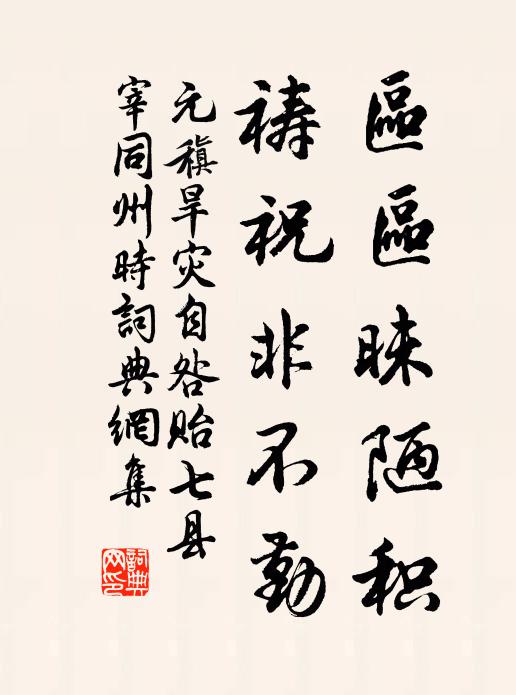 區區昧陋积
祷祝非不勤
元稹旱灾自咎贻七县
宰同州時詞典網集
詞典
网印